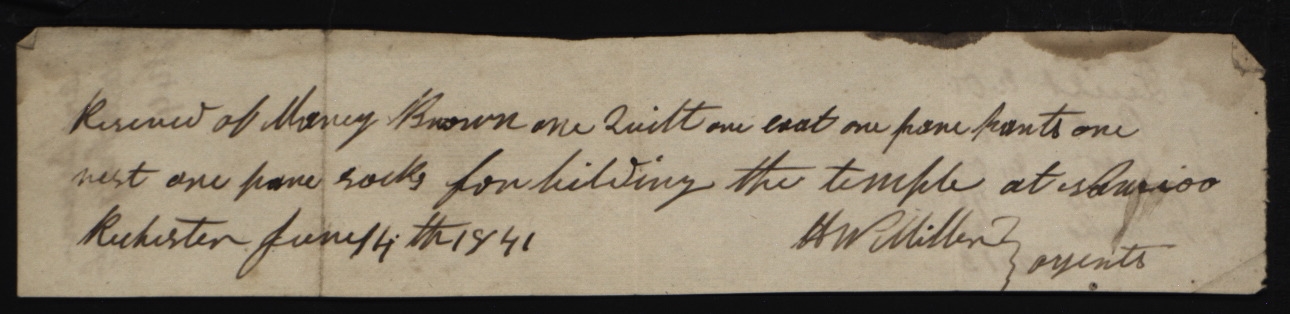 Reseived of Maney Brown one Quilt one coat one pane pants one
vest one pane socks for bilding the temple at
Rochester June 14th 1841 H W Miller } agents